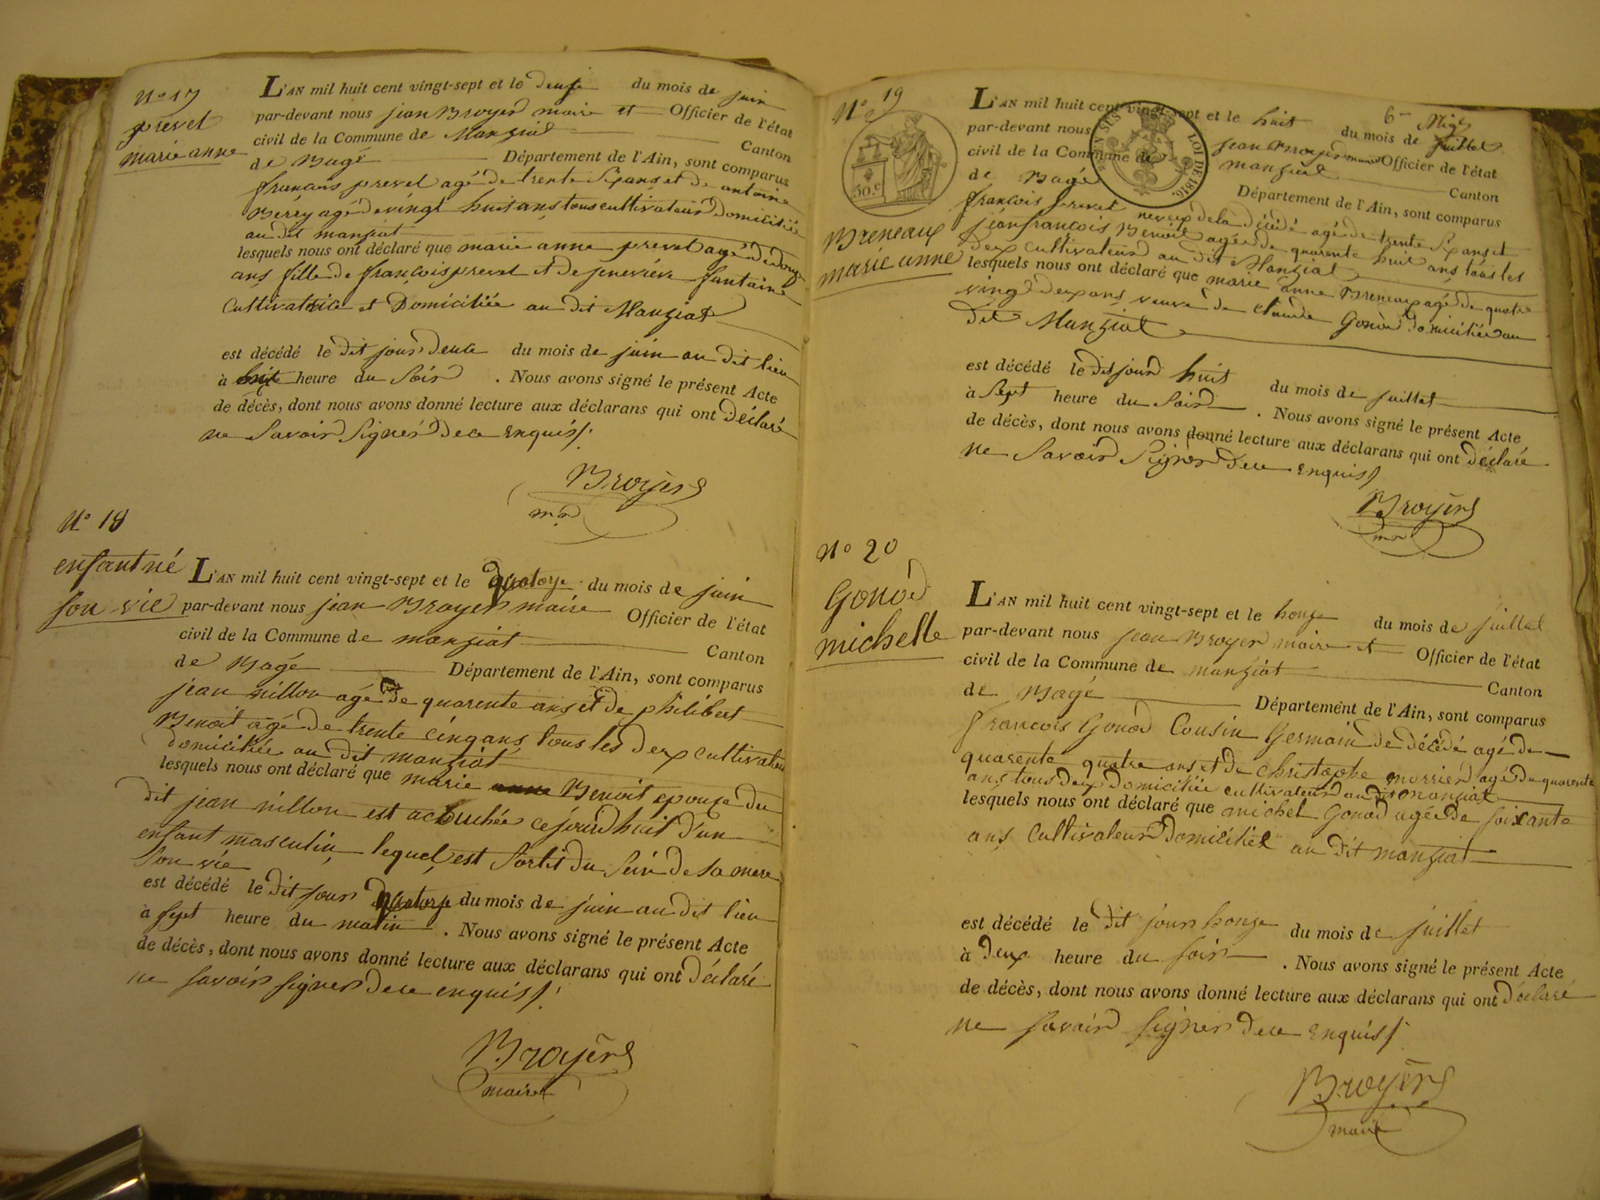 N° 17
prevel
marie anne
L'AN mil huit cent vingt-sept et le deuse du mois de juin
par-devant nous jean Broyer maire et Officier de l'état
civil de la Commune de Manziat Canton
de Bagé Département de l'Ain, sont comparus
françois prevel agé de trente six ans et de antoine
Berey agé de vingt huit ans tous cultivateurs domiciliée
au dit manziat
lesquels nous ont déclaré que marie anne prevel agé de douze
ans fille de françois prevel et de jeneviève fontaine
Cultivatrice et Domiciliée au dit Manziat
est décédé le dit jour deuse du mois de juin au dit lieu
à huit heure du soir . Nous avons signé le présent Acte
de décès, dont nous avons donné lecture aux déclarans qui ont déclaré
ne savoir signer de ce enquis.
Broyer
mr
N° 18
enfant né
son vie
L'AN mil huit cent vingt-sept et le quatorze du mois de juin
par-devant nous jean Broyer maire Officier de l'état
civil de la Commune de manziat Canton
de Bagé Département de l'Ain, sont comparus
jean nillon agé de quarente ans et de philibert
Benoit agé de trente cinq ans tous les deux cultivateur
domiciliée au dit manziat
lesquels nous ont déclaré que marie anne Benoit epouse du
dit jean nillon est acouchée ce jourdhuit d'un
enfant masculin lequel est sortit du sein de sa mere
son vie
est décédé le dit jour quatorze du mois de juin au dit lieu
à sept heure du matin . Nous avons signé le présent Acte
de décès, dont nous avons donné lecture aux déclarans qui ont déclaré
ne savoir signer de ce enquis.
Broyer
maire
N° 19
50 c
LOI DE 1816
Breneaux
marie anne
L'AN mil huit cent vingt-sept et le huit du mois de juillet
par-devant nous jean Broyer maire Officier de l'état
civil de la Commune de manziat Canton
de Bagé Département de l'Ain, sont comparus
françois prevel neveux de la décédé agé de trente six ans et
jean françois Benoit agé de quarente huit ans tous les
deux cultivateurs au dit Manziat
lesquels nous ont déclaré que marie anne Breneaux agé de quatre
vingt deux ans veuve de claude Gonod domiciliée au
dit Manziat
est décédé le dit jour huit du mois de juillet
à sept heure du soir . Nous avons signé le présent Acte
de décès, dont nous avons donné lecture aux déclarans qui ont déclaré
ne savoir signer de ce enquis
Broyer
mr
N° 20
Gonod
michelle
L'AN mil huit cent vingt-sept et le honze du mois de juillet
par-devant nous jean Broyer maire et Officier de l'état
civil de la Commune de manziat Canton
de Bagé Département de l'Ain, sont comparus
françois Gonod Cousin Germain de décédé agé de
quarente quatre ans et de christophe agé de quarente
ans tous deux domiciliée cultivateurs au dit manziat
lesquels nous ont déclaré que michel Gonod agé de soixante
ans Cultivateur domiciliée au dit manziat
est décédé le dit jour honze du mois de juillet
à deux heure du soir . Nous avons signé le présent Acte
de décès, dont nous avons donné lecture aux déclarans qui ont déclaré
ne savoir signer de ce enquis
Broyer
maire